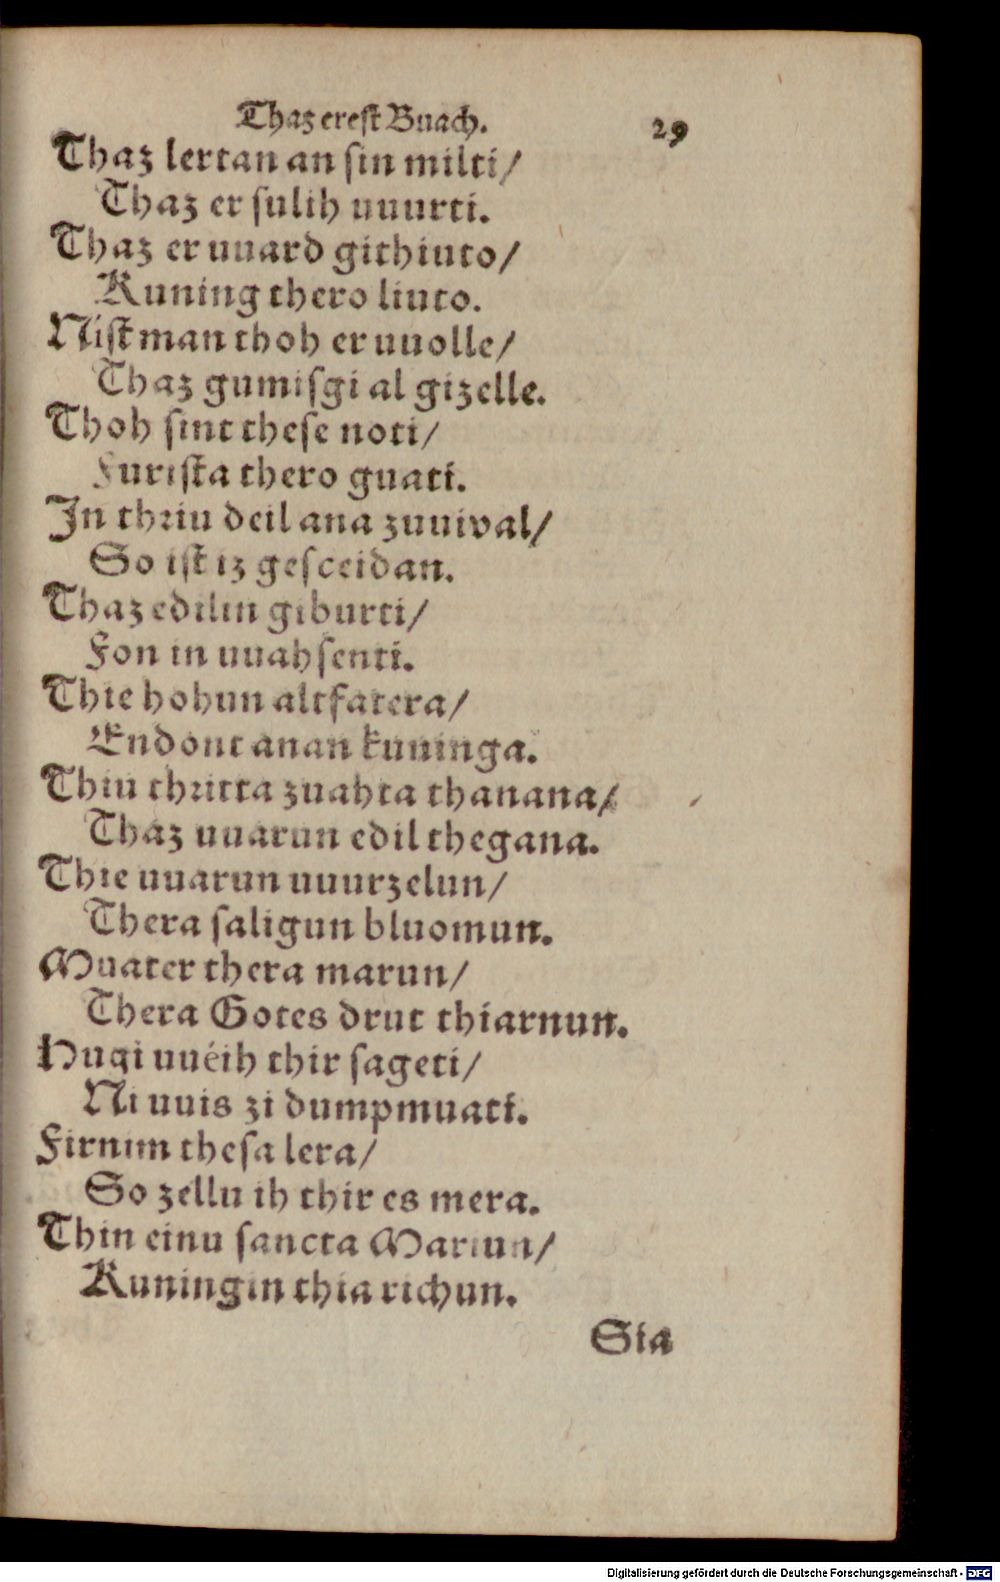 Thaz erest Buach. 29
Thaz lertan an sin milti/
Thaz er sulih uuurti.
Thaz er uuard githiuto/
Kuning thero liuto.
Nist man thoh er uuolle/
Thaz gumisgi al gizelle.
Thoh sint these noti/
Furista thero guati.
In thriu deil ana zuuival/
So ist iz gesceidan.
Thaz edilin giburti/
Fon in uuahsenti.
Thie hohun altfatera/
Endont anan kuninga.
Thiu thritta zuahta thanana/
Thaz uuarun edil thegana.
Thie uuarun uuurzelun/
Thera saligun bluomun.
Muater thera marun/
Thera Gotes drut thiarnun.
Hugi uuéih thir sageti/
Ni uuis zi dumpmuati.
Firnim thesa lera/
So zellu ih thir es mera.
Thin einu sancta Mariun/
Kuningin thia richun.
Sia
Digitalisierung gefördert durch die Deutsche Forschungsgemeinschaft - DFG